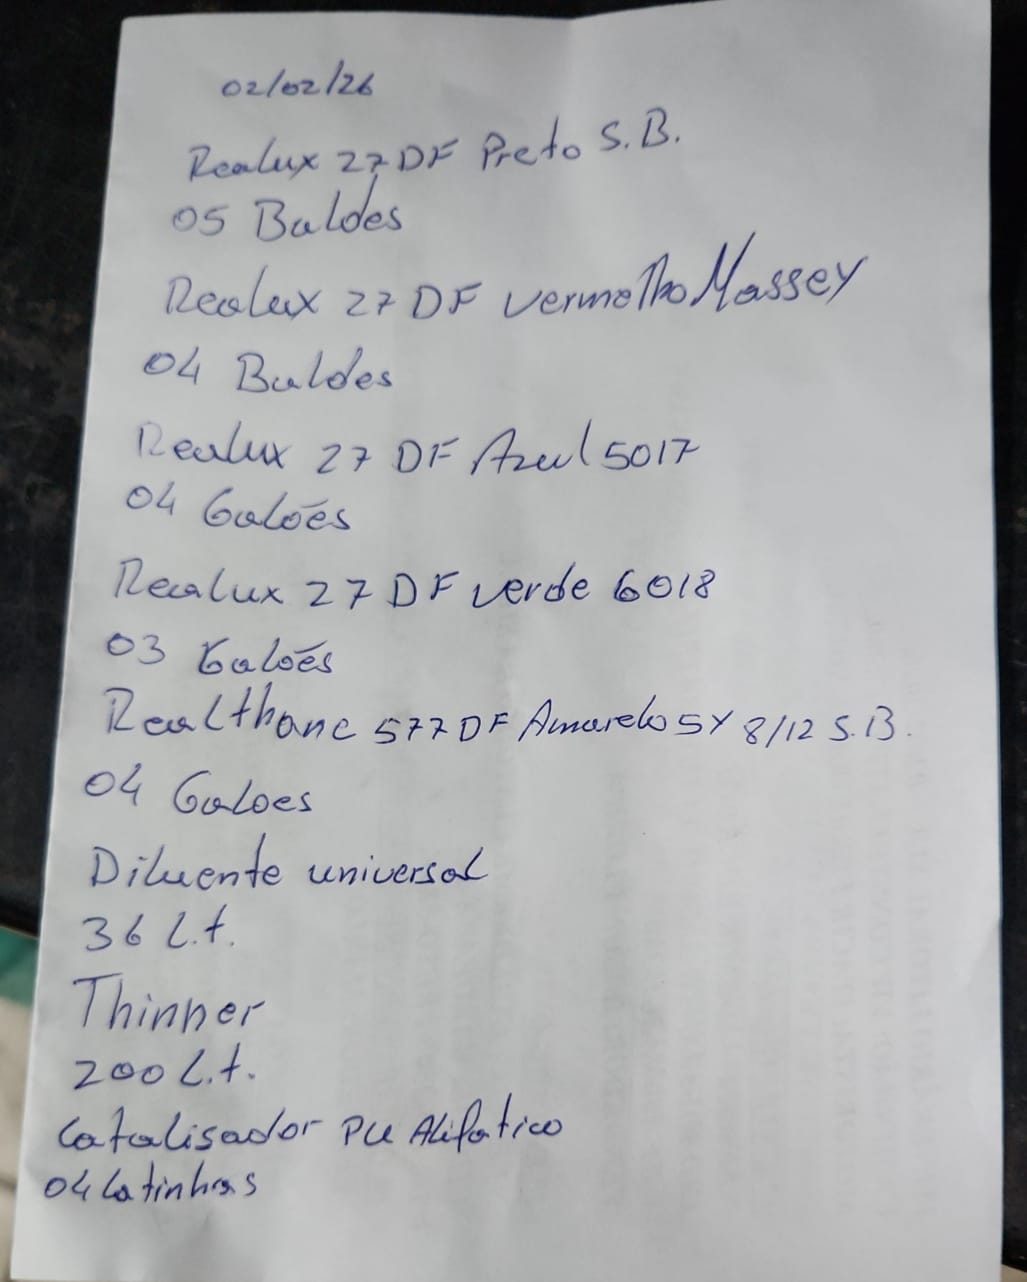 02/02/26
Realux 27 DF Preto S.B.
05 Baldes
Realux 27 DF vermelho Massey
04 Baldes
Realux 27 DF Azul 5017
04 Galões
Realux 27 DF verde 6018
03 Galões
Realthane 577 DF Amarelo 5Y 8/12 S.B.
04 Galoes
Diluente universal
36 L.t.
Thinner
200 L.t.
Catalisador PU Alifatico
04 Latinhas